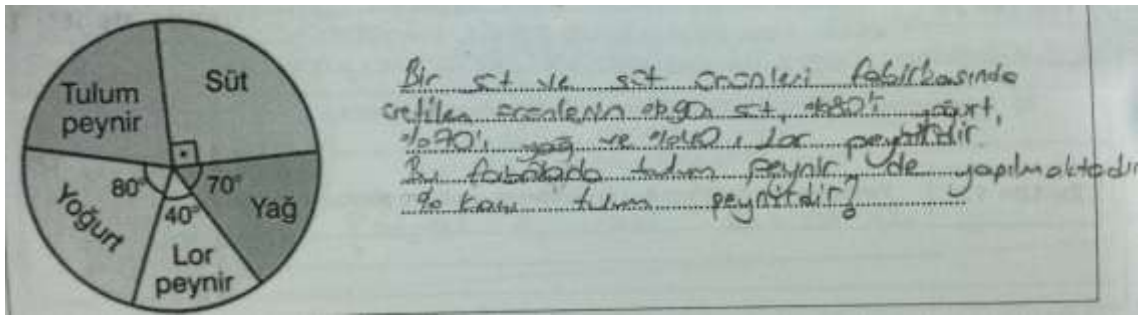 Tulum
peynir
Süt
80°
70°
40°
Yoğurt
Yağ
Lor
peynir
Bir süt ve süt ürünleri fabirkasında
üretilen ürünlerin %90ı süt, %80'i yoğurt,
%70'i yağ ve %40'ı Lor peynirdir.
Bu fabrikada tulum peynir de yapılmaktadır
% kaçı tulum peynirdir?